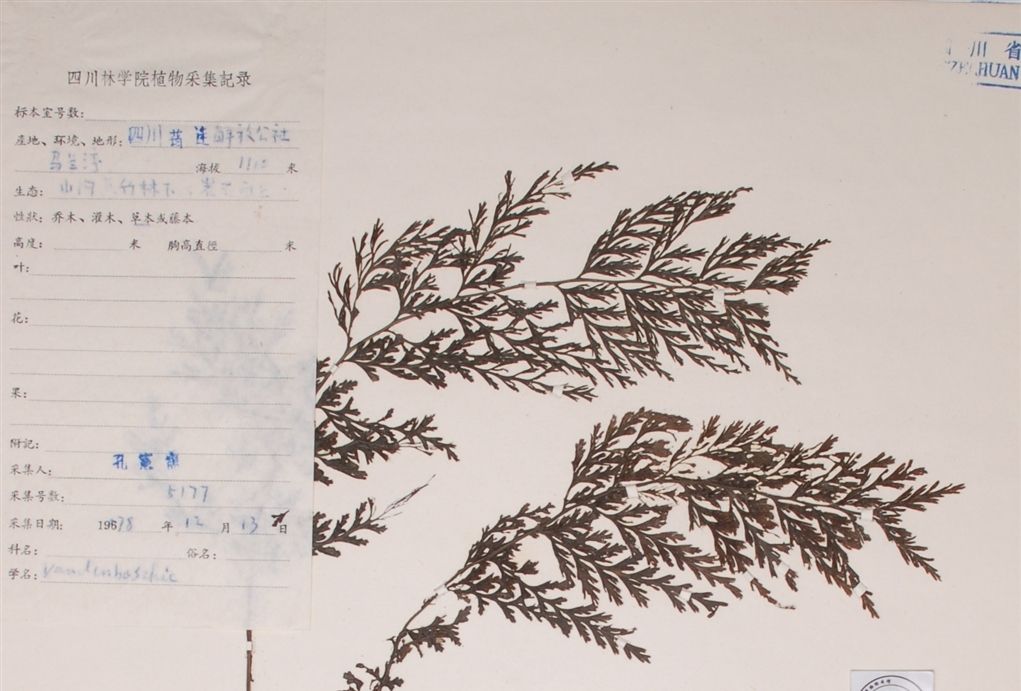 四川林学院植物采集記录
标本室号数:
産地、环境、地形: 四川 筠連 解放公社
海拔 米
生态: 山 竹林下
性狀: 乔木、灌木、草本或藤本
高度: 米 胸高直徑 米
叶:
花:
果:
附記:
采集人: 孔憲
采集号数: 5177
采集日期: 1978 年 12 月 13 日
科名: 俗名:
学名: Vandenboschia
川 省
HUAN